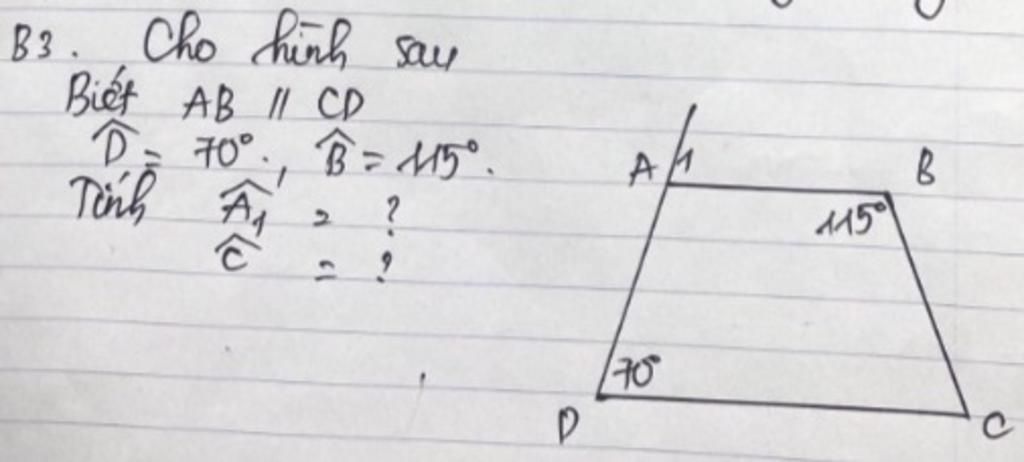 B3. Cho hình sau
Biết AB // CD
D̂ = 70°, B̂ = 115°.
Tính Â₁ = ?
Ĉ = ?
A 1 B
115°
70°
D C